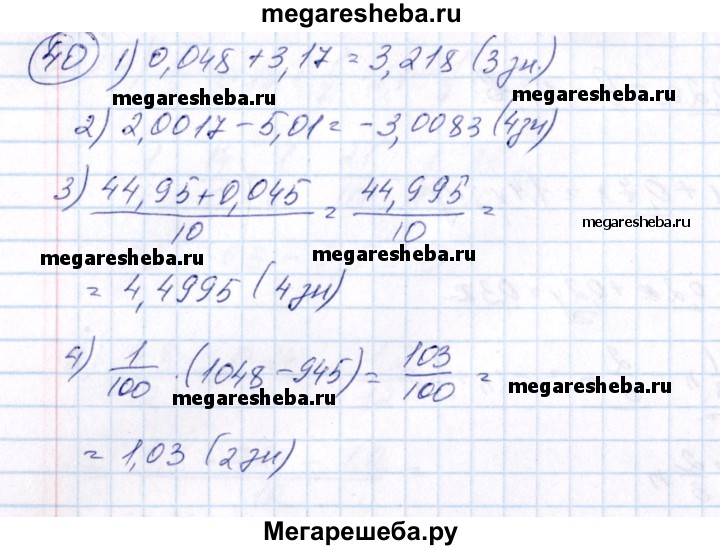 megaresheba.ru
40 1) 0,048 + 3,17 = 3,218 (3 зн.)
megaresheba.ru
2) 2,0017 - 5,01 = -3,0083 (4зн)
3) (44,95 + 0,045)/10 = 44,995/10 =
megaresheba.ru
megaresheba.ru megaresheba.ru
= 4,4995 (4 зн)
4) 1/100 · (1048 - 945) = 103/100 =
megaresheba.ru megaresheba.ru
= 1,03 (2 зн)
Мегарешеба.ру